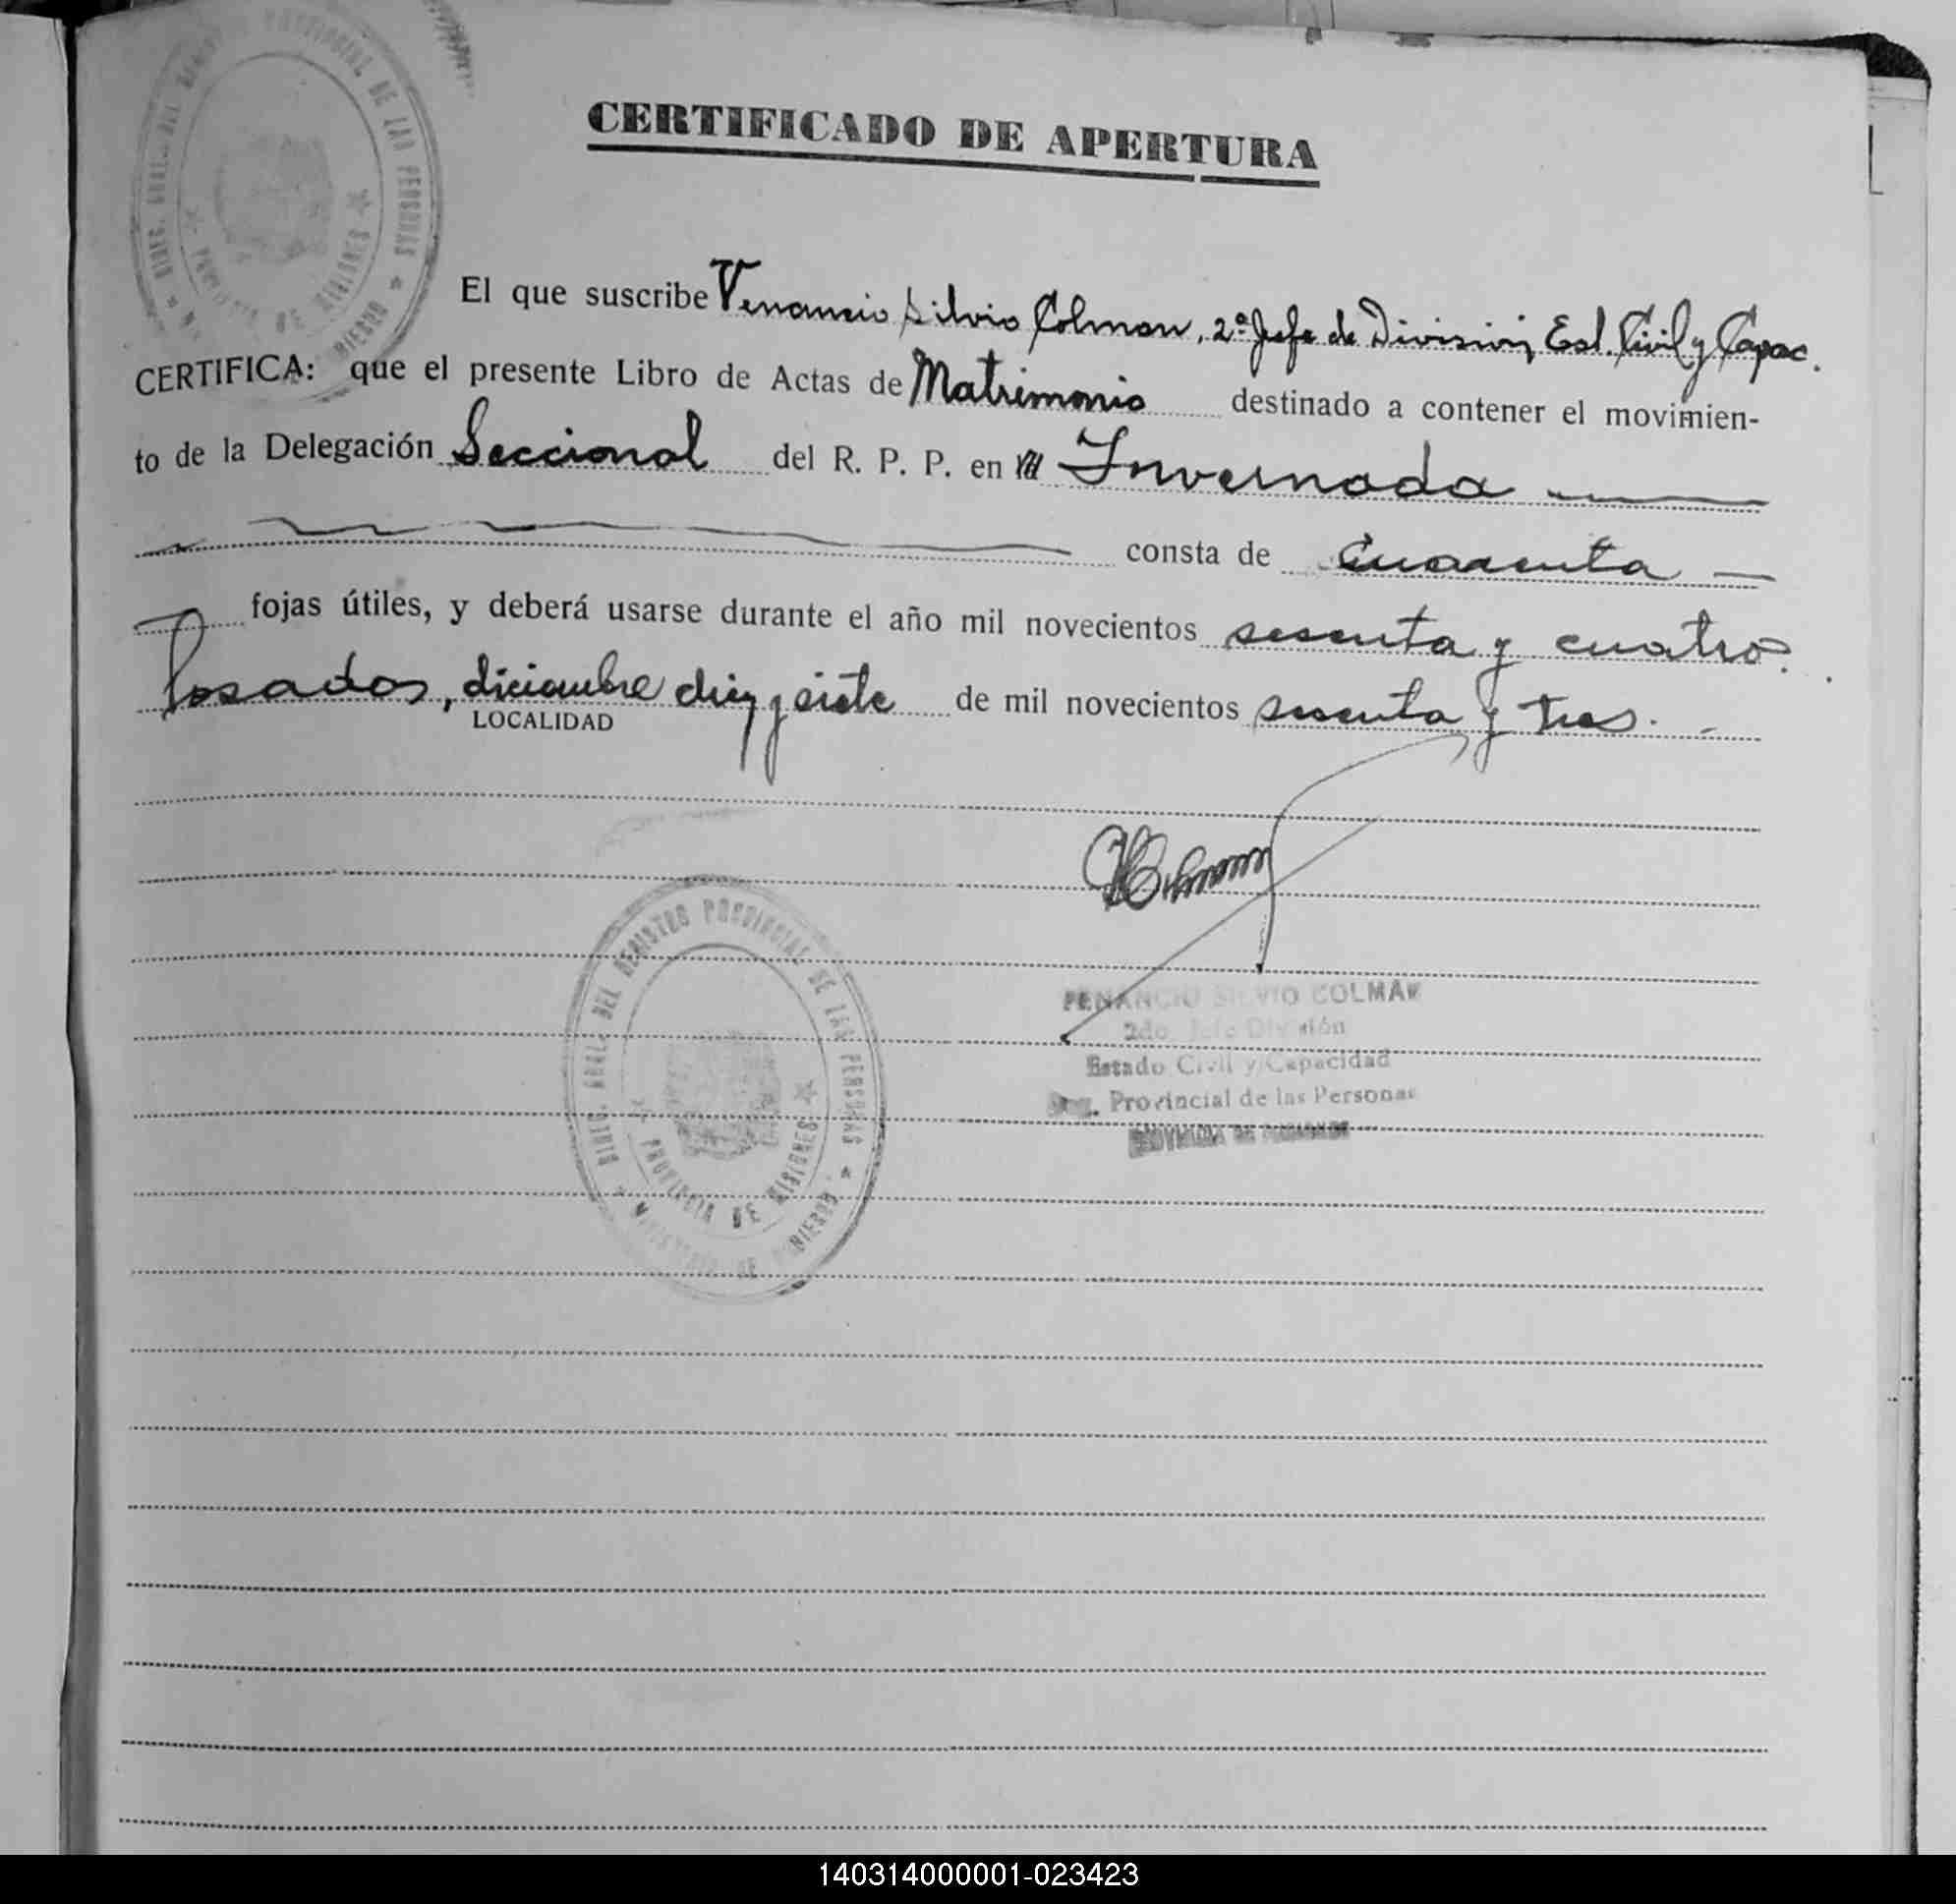 CERTIFICADO DE APERTURA
El que suscribe Venancio Silvio Colman, 2º Jefe de División Est. Civil y Capac.
CERTIFICA: que el presente Libro de Actas de Matrimonio destinado a contener el movimien-
to de la Delegación Seccional del R. P. P. en Invernada
consta de Cuarenta
fojas útiles, y deberá usarse durante el año mil novecientos sesenta y cuatro.
Posadas, diciembre diez y siete de mil novecientos sesenta y tres.
LOCALIDAD
DIREC. GRAL. DEL REGISTRO PROVINCIAL DE LAS PERSONAS
PROVINCIA DE MISIONES
VENANCIO SILVIO COLMAN
2do. Jefe División
Estado Civil y Capacidad
Provincial de las Personas
PROVINCIA DE MISIONES
140314000001-023423